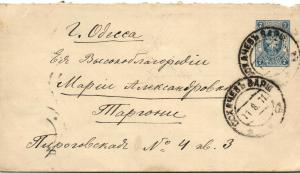 г. Одесса
Ея Высокоблагородiю
Марiи Александровне
Таргони
Пироговская № 4 кв. 3
7
СОХАЧЕВЪ ВАРШ
11 8 11